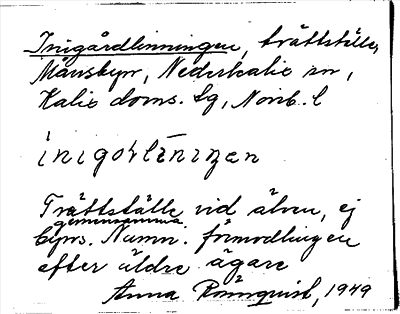 Inigårdlinningen, tvättställe,
Månsbyn, Nederkalix sn,
Kalix doms. lg, Norrb. l
inigorlēningen
Tvättställe vid älven, ej
gemensamma
byns. Namn. förmodligen
efter äldre ägare
Anna Rönnquist, 1949